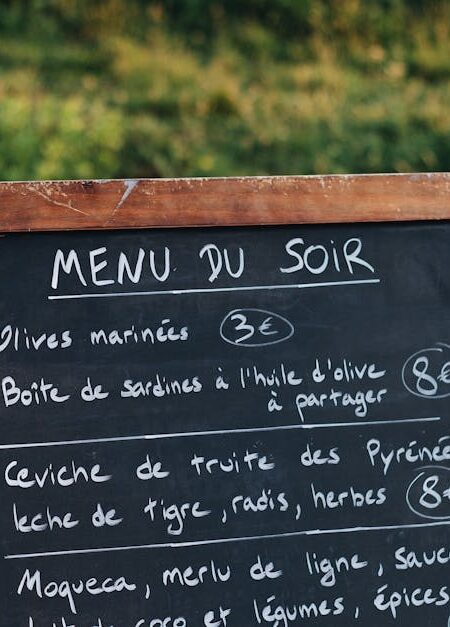 MENU DU SOIR
Olives marinées 3€
Boîte de sardines à l'huile d'olive 8€
à partager
Ceviche de truite des Pyréné
leche de tigre, radis, herbes 8
Moqueca, merlu de ligne, sauc
coco et légumes, épices